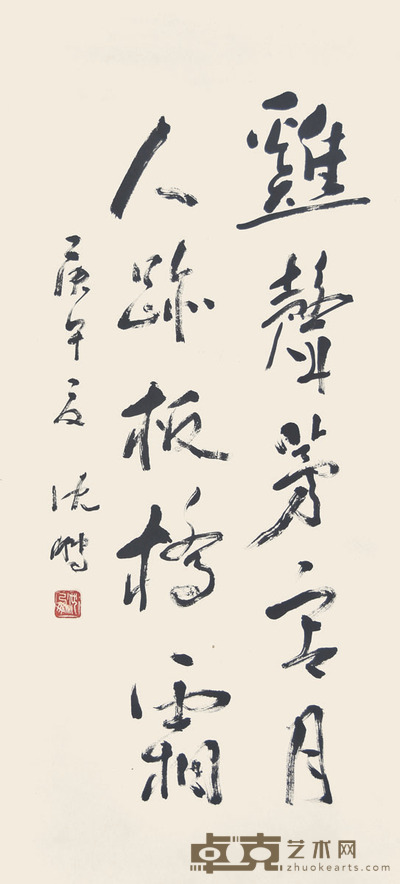 雞聲茅店月
人跡板橋霜
庚午夏 沈鵬
卓克艺术网
zhuokearts.com